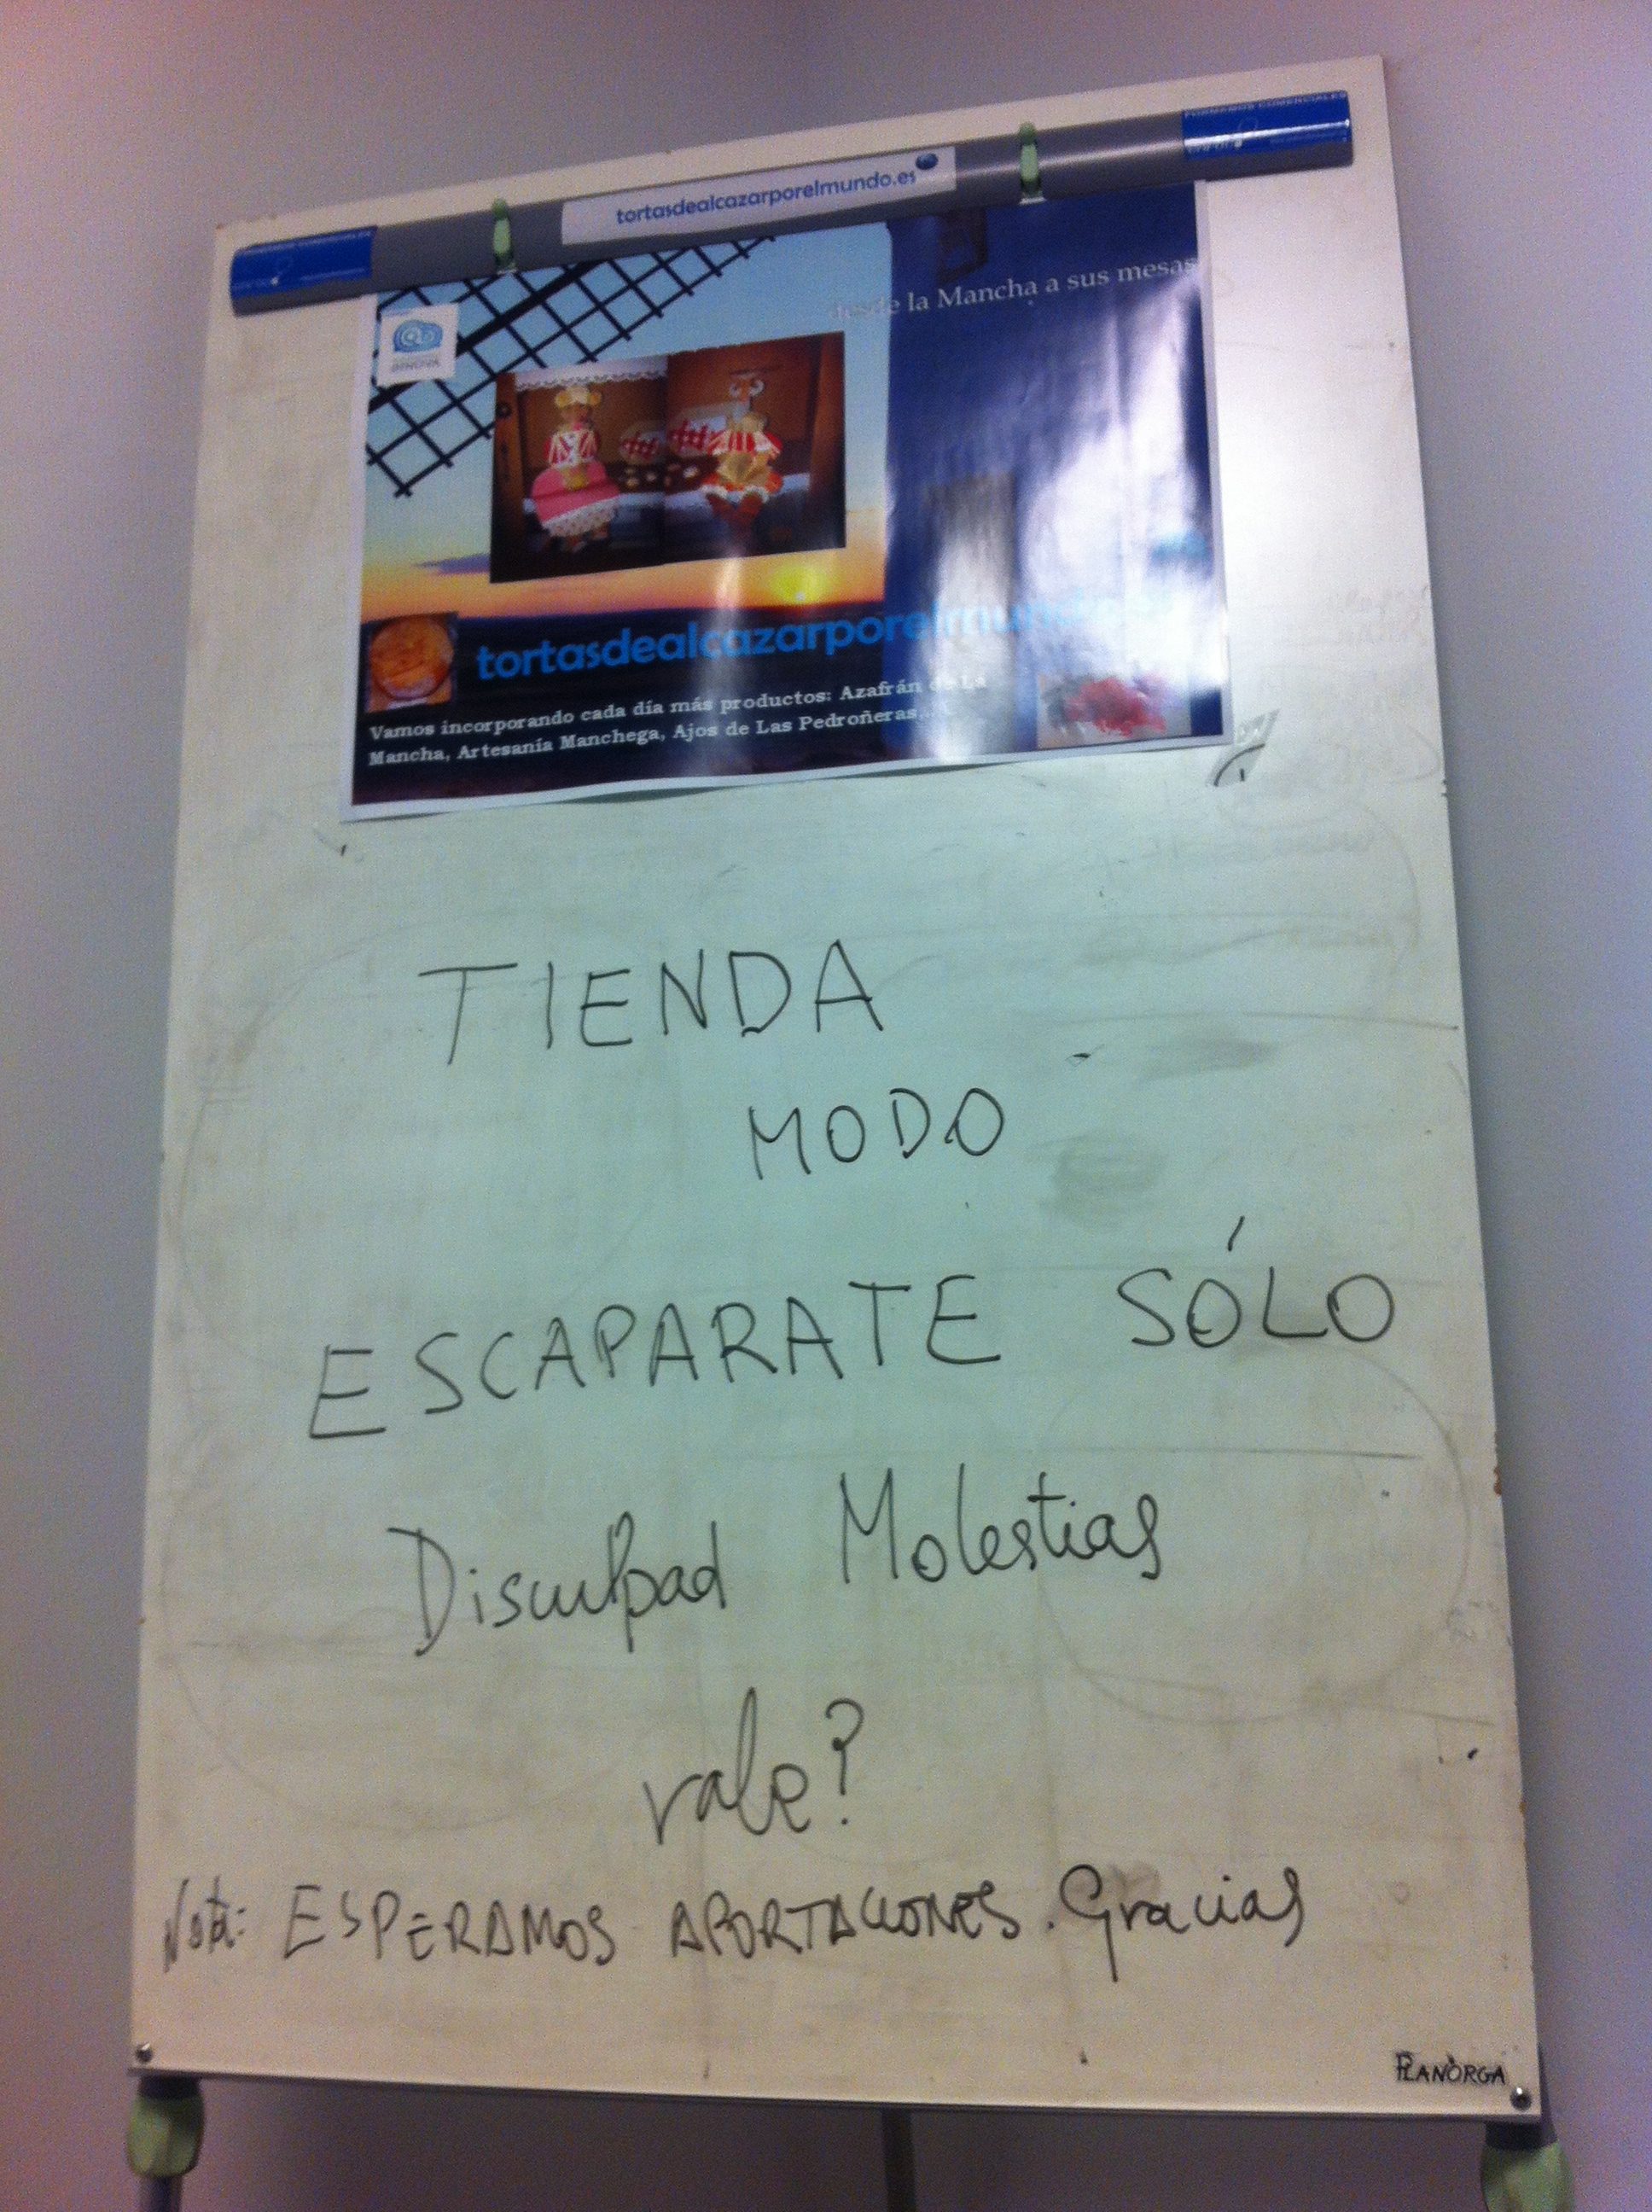 tortasdealcazarporelmundo.es
desde la Mancha a sus mesas
tortasdealcazarporelmundo
Vamos incorporando cada día más productos: Azafrán de La
Mancha, Artesanía Manchega, Ajos de Las Pedroñeras...
TIENDA
MODO
ESCAPARATE SÓLO
Disculpad Molestias
vale?
Nota: ESPERAMOS APORTACIONES. Gracias
PLANÒRGA